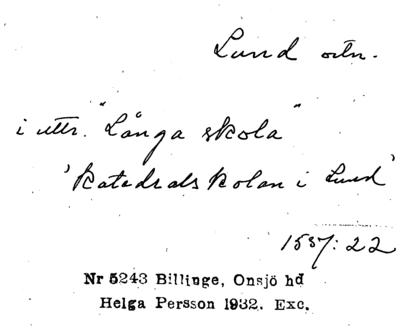 Lund ortn.
i uttr. "Långa skola"
'Katedralskolan i Lund'
1537: 22
Nr 5243 Billinge, Onsjö hd
Helga Persson 1932. Exc.